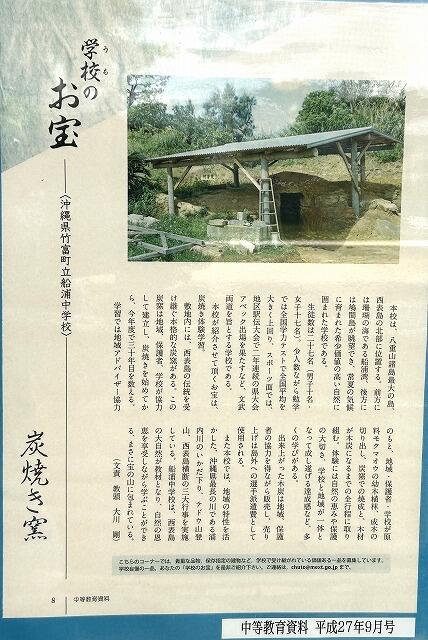 学校の
うち
お宝
〈沖縄県竹富町立船浦中学校〉
炭焼き窯
本校は、八重山諸島最大の島、
西表島の北部に位置する。前方に
は珊瑚の海である船浦湾、後方に
は鳩間島が眺望でき、常夏の気候
に育まれた希少価値の高い自然に
囲まれた学校である。
生徒数は二十七名(男子十名、
女子十七名)。少人数ながら勉学
では全国学力テストで全国平均を
大きく上回り、スポーツ面では、
地区駅伝大会で二年連続の県大会
アベック出場を果たすなど、文武
両道を旨とする学校である。
本校が紹介させて頂くお宝は、
炭焼き体験学習。
敷地内には、西表島の伝統を受
け継ぐ本格的な炭窯がある。この
炭窯は地域、保護者、学校が協力
して建立し、炭焼きを始めてか
ら、今年度で三十年目を数える。
学習では地域アドバイザー協力
のもと、地域・保護者・学校が原
料モクマオウの幼木植林、成木の
切り出し、炭窯での焼成と、木材
が木炭になるまでの全行程に取り
組む。体験には自然の恵みや保護
の大切さ、学校と地域が一体と
なって成し遂げる達成感など、多
くの学びがある。
出来上がった木炭は地域、保護
者の協力を得ながら販売し、売り
上げは島外への選手派遣費として
使用される。
また本校では、地域の特性を活
かした、沖縄県最長の川である浦
内川のいかだ下り、テドウ山登
山、西表島横断の三大行事を実施
している。船浦中学校は、西表島
の大自然が教材となり、自然の恩
恵を享受しながら学ぶことができ
る、まさに宝の山に包まれている。
(文責 教頭 大川 剛)
こちらのコーナーでは、貴重な品物、保存指定の建物など、学校で受け継がれている価値ある一品を募集しています。
学校自慢の一品、あなたの「学校のお宝」を是非ご紹介下さい。ご連絡は、chuto@mext.go.jpまで。
8 中等教育資料
中等教育資料 平成27年9月号